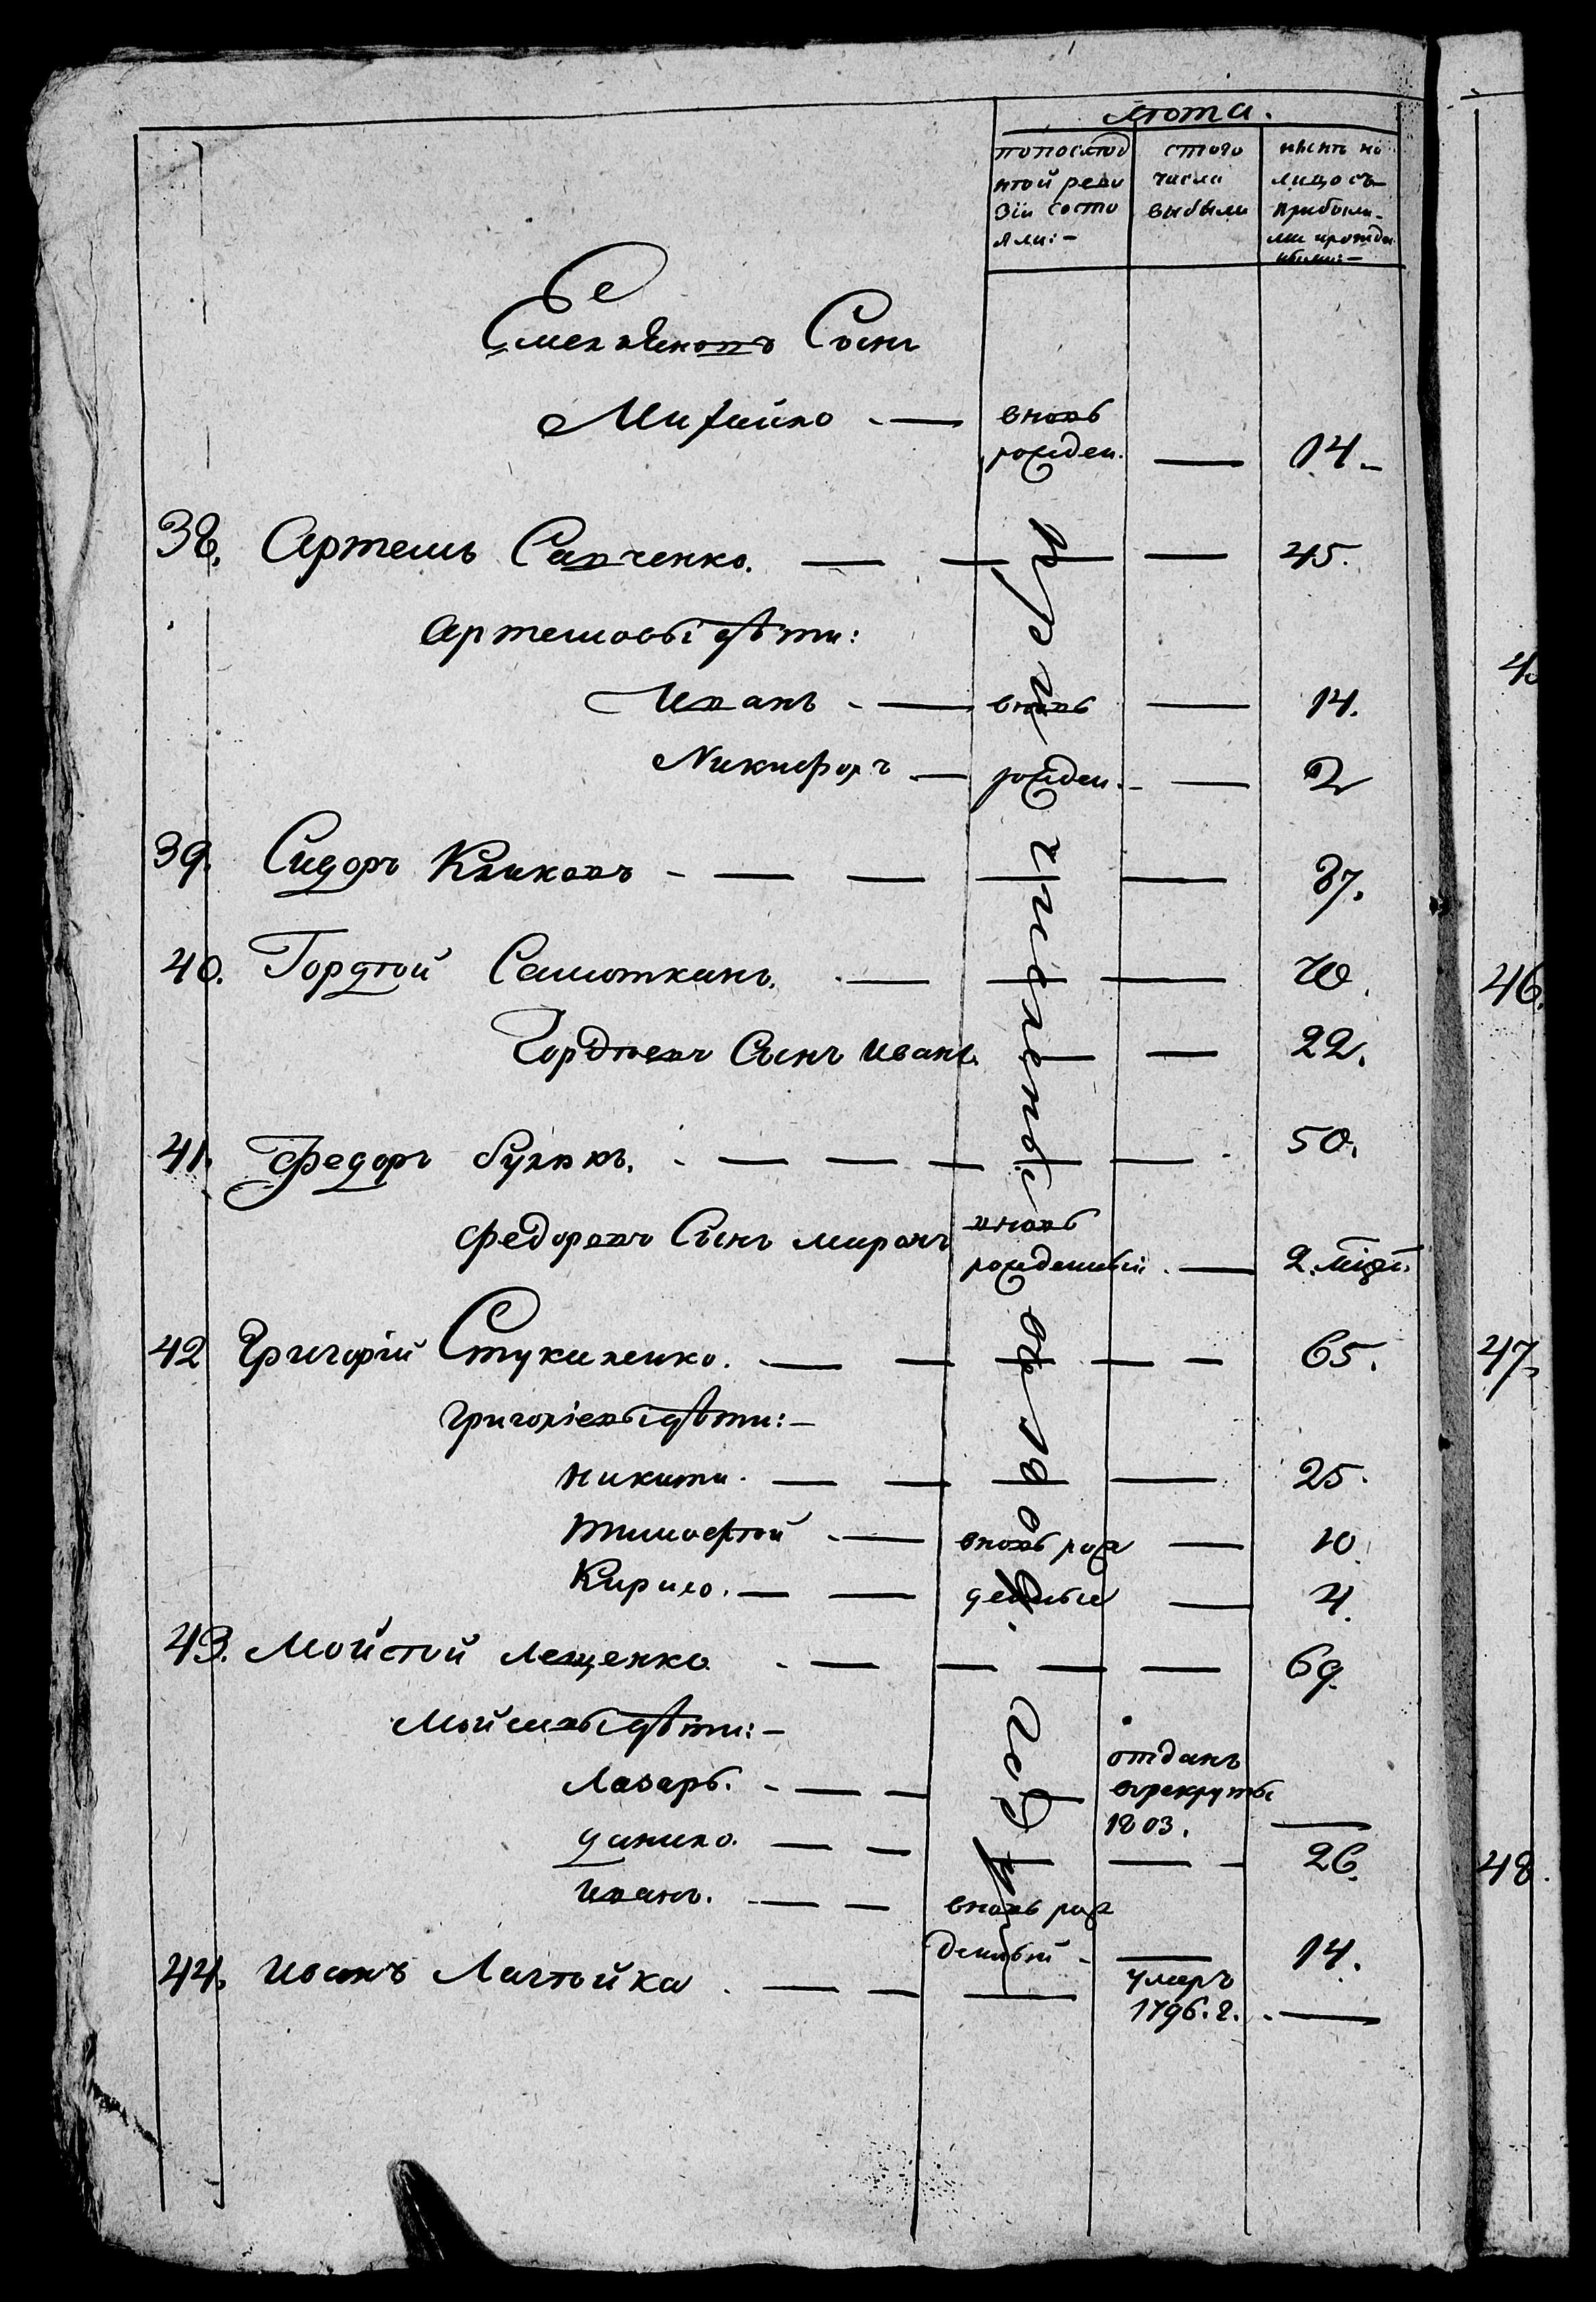 лѣта.
по послѣд
ней реви
зіи состо
яли:-
с того
числа
выбыли
нынѣ на
лицо съ
прибылы-
ми и рожде
ными:-
Емельяновъ Сынъ
Михайло - — вновь
рожден. — 14.-
38. Артемъ Савченко. — — — 45.
Артемовы дѣти:
Иванъ - — вновь — 14.
Никифоръ - — рожден. - — 2
39. Сидоръ Кликовъ - — — — — 37.
40. Гордѣй Самоткань. — — — 70.
Гордѣевъ Сынъ Иванъ — — 22.
41. Федоръ Булахъ. - — — — — — 50.
Федоровъ Сынъ миронъ вновь
рожденный. — 2. мѣся.
42 Григорій Стукаленко. — — — — — 65.
Григоріевы дѣти:-
Никита. — — — — 25.
Тимофѣй - — вновь рож — 10.
Кирило. — — денные — 4.
43. Мойсѣй Лещенко - — — — — 69.
Мойсеевы дѣти:-
Лазарь. - — — — отданъ
в рекруты
1803. —
данило. — — — — - 26.
Иванъ. — — вновь рож
денный - — 14.
44. Иванъ Лагпойка . — — — умеръ
1796. г. . —
Причисленые
в 1801
году
4
46.
47.
48.